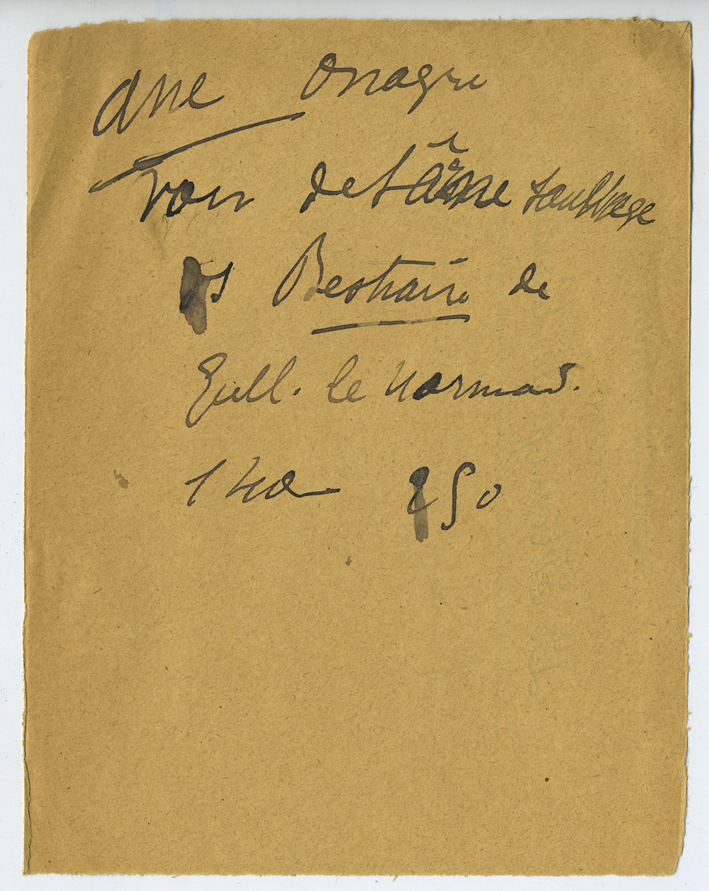 Ane Onagre
voir de l'âne sauvage
ds Bestiaire de
Guill. le Normad.
140 250